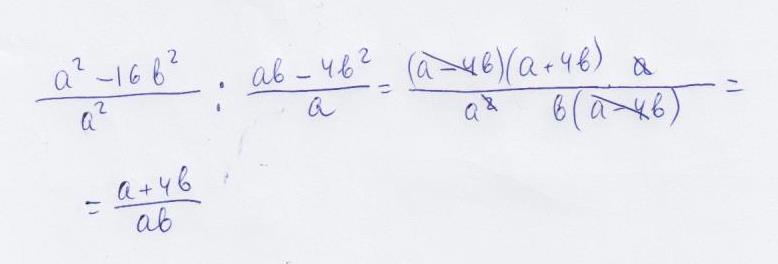 \frac{a^2 - 16b^2}{a^2} : \frac{ab - 4b^2}{a} = \frac{(a - 4b)(a + 4b) \; a}{a^2 \; b(a - 4b)} =
= \frac{a + 4b}{ab}